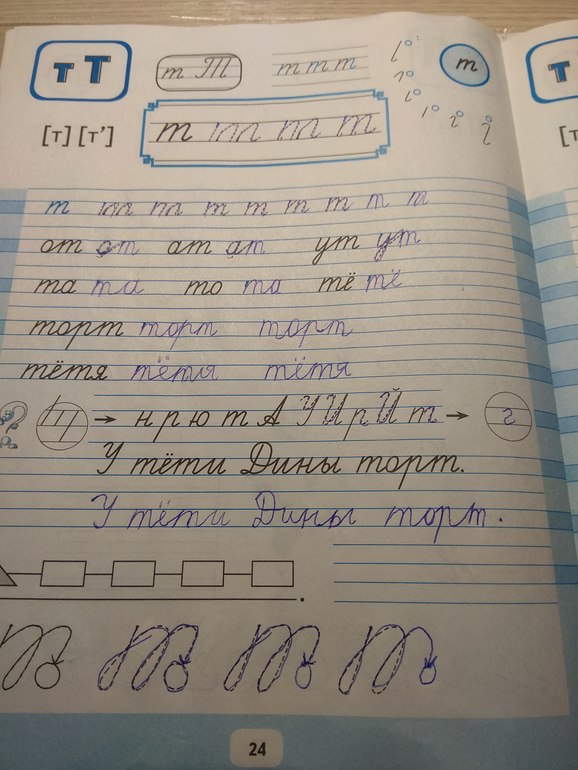 т Т т Т т т т т
[т] [т'] т т т т
т т т т т т т т т
от от ат ат ут ут
та та то та тё тё
торт торт торт
тётя тётя тётя
→ н р ю т А У И р Й т → г
У тёти Дины торт.
У тёти Дины торт.
24